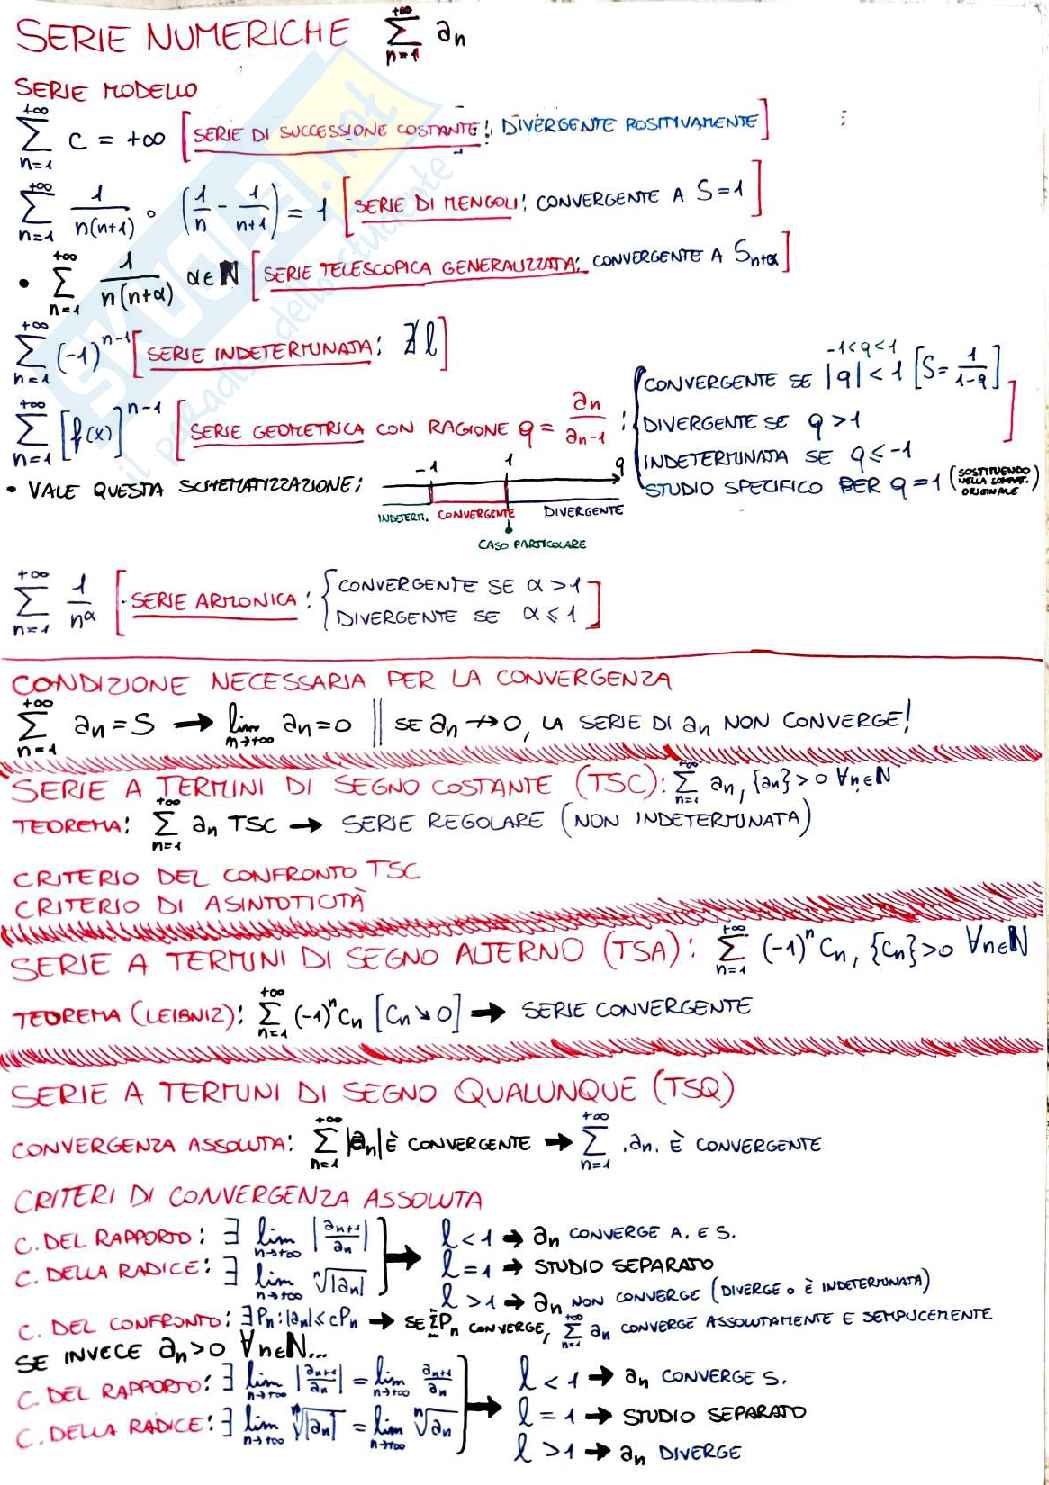 SERIE NUMERICHE +∞ Σ n=1 an
SERIE MODELLO
+∞ Σ n=1 C = +∞ [SERIE DI SUCCESSIONE COSTANTE! DIVERGENTE POSITIVAMENTE]
+∞ Σ n=1 1/n(n+1) ∘ (1/n - 1/n+1) = 1 [SERIE DI MENGOLI! CONVERGENTE A S=1]
• +∞ Σ n=1 1/n(n+α) α∈N [SERIE TELESCOPICA GENERALIZZATA: CONVERGENTE A Sn+α]
+∞ Σ n=1 (-1)^n-1 [SERIE INDETERMINATA: ∄ l]
+∞ Σ n=1 [f(x)]^n-1 [SERIE GEOMETRICA CON RAGIONE q = an/an-1 :
-1<q<1
CONVERGENTE SE |q| < 1 [S= 1/1-q]
DIVERGENTE SE q > 1
INDETERMINATA SE q ≤ -1
STUDIO SPECIFICO PER q = 1 (SOSTITUENDO NELLA ORIGINALE)]
• VALE QUESTA SCHEMATIZZAZIONE:
-1 1 q
INDETERM. CONVERGENTE DIVERGENTE
CASO PARTICOLARE
+∞ Σ n=1 1/n^α [SERIE ARMONICA: { CONVERGENTE SE α > 1
DIVERGENTE SE α ≤ 1 ]
CONDIZIONE NECESSARIA PER LA CONVERGENZA
+∞ Σ n=1 an = S → lim n→+∞ an = 0 || SE an ↛ 0, LA SERIE DI an NON CONVERGE!
SERIE A TERMINI DI SEGNO COSTANTE (TSC): +∞ Σ n=1 an, {an} > 0 ∀n∈N
TEOREMA: +∞ Σ n=1 an TSC → SERIE REGOLARE (NON INDETERMINATA)
CRITERIO DEL CONFRONTO TSC
CRITERIO DI ASINTOTICITÀ
SERIE A TERMINI DI SEGNO ALTERNO (TSA): +∞ Σ n=1 (-1)^n Cn, {Cn} > 0 ∀n∈N
TEOREMA (LEIBNIZ): +∞ Σ n=1 (-1)^n Cn [Cn ↘ 0] → SERIE CONVERGENTE
SERIE A TERMINI DI SEGNO QUALUNQUE (TSQ)
CONVERGENZA ASSOLUTA: +∞ Σ n=1 |an| È CONVERGENTE → +∞ Σ n=1 an È CONVERGENTE
CRITERI DI CONVERGENZA ASSOLUTA
C. DEL RAPPORTO: ∃ lim n→+∞ |an+1/an|
C. DELLA RADICE: ∃ lim n→+∞ n√|an|
l < 1 → an CONVERGE A. E S.
l = 1 → STUDIO SEPARATO
l > 1 → an NON CONVERGE (DIVERGE O È INDETERMINATA)
C. DEL CONFRONTO: ∃ Pn: |an| ≤ c Pn → SE ΣPn CONVERGE, +∞ Σ n=1 an CONVERGE ASSOLUTAMENTE E SEMPLICEMENTE
SE INVECE an > 0 ∀n∈N...
C. DEL RAPPORTO: ∃ lim n→+∞ |an+1/an| = lim n→+∞ an+1/an
C. DELLA RADICE: ∃ lim n→+∞ n√|an| = lim n→+∞ n√an
l < 1 → an CONVERGE S.
l = 1 → STUDIO SEPARATO
l > 1 → an DIVERGE
SKUOLA.net
il paradiso dello studente